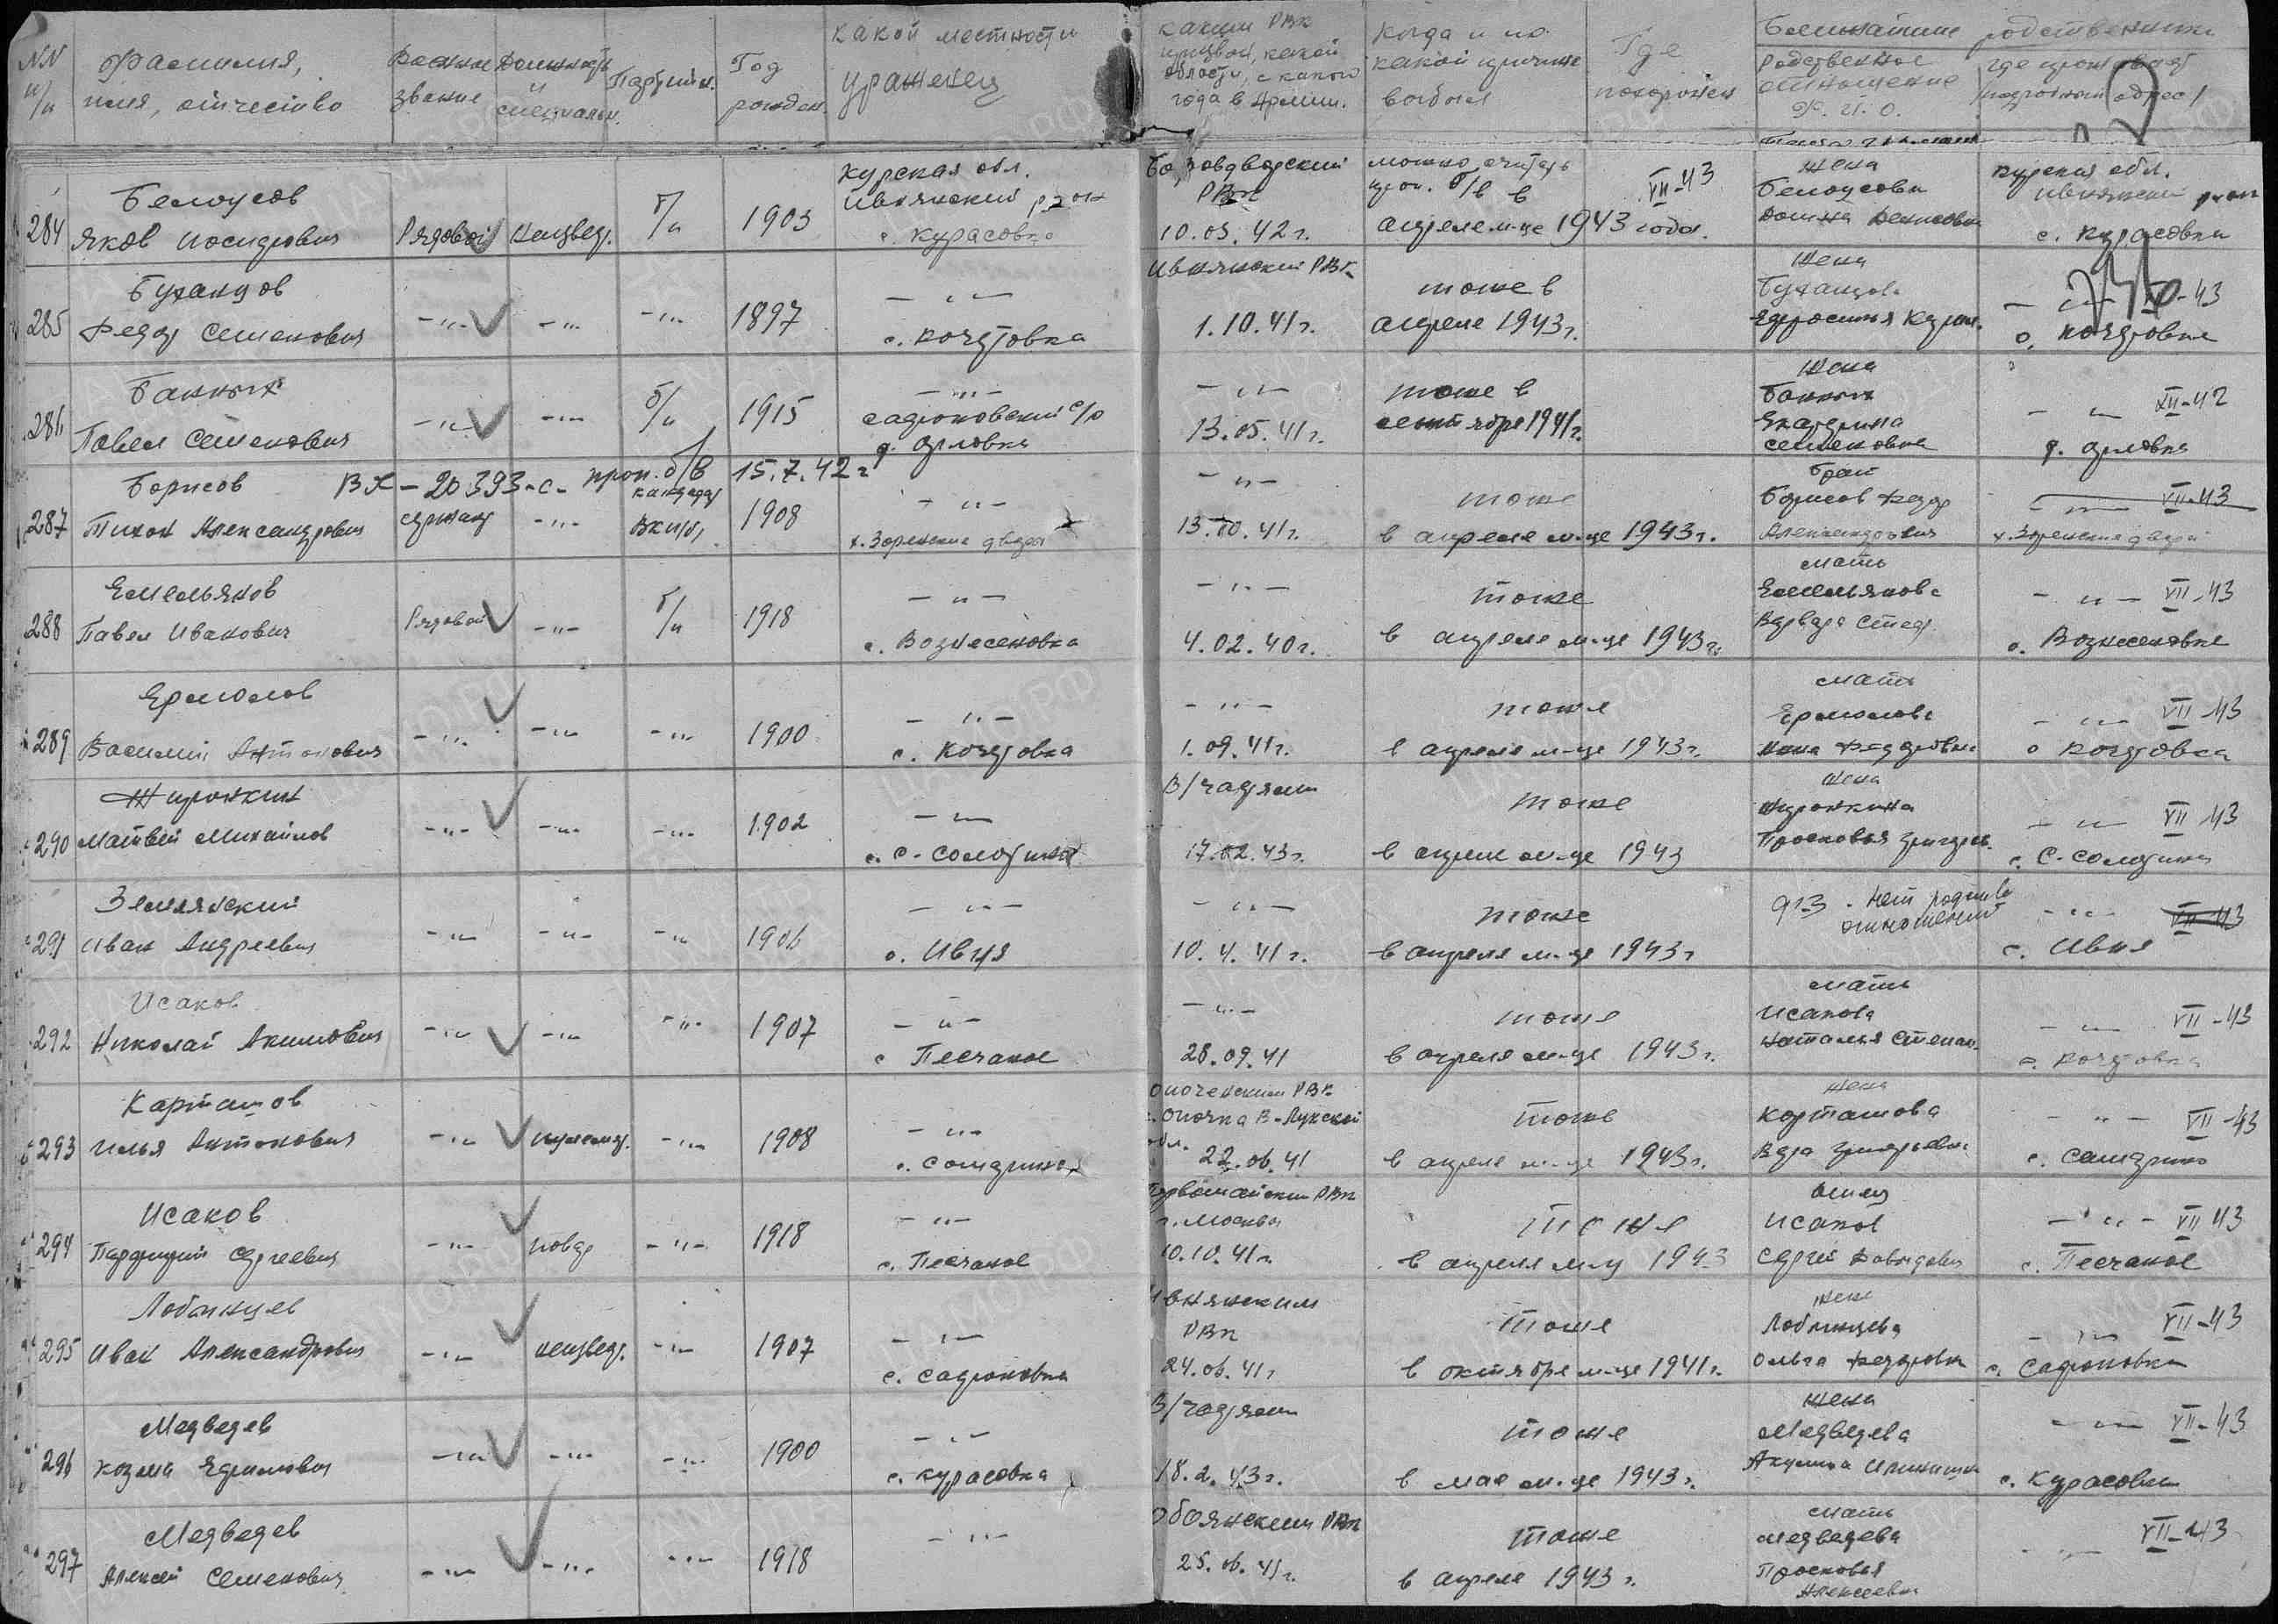 NN п/п
Фамилия, имя, отчество
Военное звание
Должность и специальн.
Партийн.
Год рожден.
Какой местности уроженец
Каким РВК призван, какой области, с какого года в Армии.
Когда и по какой причине выбыл
Где похоронен
Ближайшие родственники
Родственное отношение Ф. И. О.
где проживает /подробный адрес/
284 Белоусов
Яков Иосифович
Рядовой Неизвед. б/п 1903
Курская обл. Ивнянский район
с. Курасовка
РВК
10.03.42 г.
можно считать проп. б/в в
апреле м-це 1943 года.
VII-43
жена Белоусова
Денисовна
Курская обл. Ивнянский район
с. Курасовка
285
Федор Семенович
-"- -"- -"- 1897 -"-
с. Кочетовка
Ивнянский РВК
1.10.41 г.
тоже в апреле 1943 г.
жена
-"- -43
с. Кочетовка
286 Банных
Павел Семенович
-"- -"- б/п 1915 -"-
Сафоновский с/с
д. Орловка
-"-
13.05.41 г.
тоже в сентябре 1941 г.
жена Банных Екатерина Семеновна
-"- XII-42
д. Орловка
287 Борисов ВХ-20393-с- проп. б/в 15.7.42 г
Тихон Александрович
сержант -"- кандидат ВКП/б/ 1908 -"-
х. Зоренские дворы
-"-
13.10.41 г.
тоже
в апреле м-це 1943 г.
брат Борисов Федор Александрович
-"- VII-43
х. Зоренские дворы
288 Емельянов
Павел Иванович
Рядовой -"- б/п 1918 -"-
с. Вознесеновка
-"-
4.02.40 г.
тоже
в апреле м-це 1943 г.
мать Емельянова Варвара
-"- VII-43
с. Вознесеновка
289 Ермолов
Василий Антонович
-"- -"- -"- 1900 -"-
с. Кочетовка
-"-
1.09.41 г.
тоже
в апреле м-це 1943 г.
мать Ермолова Федоровна
-"- VII-43
с. Кочетовка
290 Жиронкин
Матвей Михайлов
-"- -"- -"- 1902 -"-
с. С-Солотино
В/частям
17.02.43 г.
тоже
в апреле м-це 1943
жена Жиронкина Просковья Григорьев.
-"- VII-43
с. С-Солотино
291 Землянский
Иван Андреевич
-"- -"- -"- 1906 -"-
с. Ивня
-"-
10.4.41 г.
тоже
в апреле м-це 1943 г
нет родств. отношений
-"- VII-43
с. Ивня
292 Исаков
Николай Акимович
-"- -"- -"- 1907 -"-
с Песчаное
-"-
28.09.41
тоже
в апреле м-це 1943 г.
мать Исакова Наталья Степан.
-"- VII-43
с. Кочетовка
293 Карташов
Илья Антонович
-"- пулемет. -"- 1908 -"-
Опоченским РВК
г. Опочка В-Лукской обл.
22.06.41
тоже
в апреле м-це 1943 г.
жена Карташова Вера Григорьевна
-"- VII-43
294 Исаков
Сергеевич
-"- повар -"- 1918 -"-
с. Песчаное
Первомайским РВК
г. Москвы
10.10.41 г.
тоже
в апреле м-це 1943
отец Исаков Сергей Давыдович
-"- VII 43
с. Песчаное
295 Лобынцев
Иван Александрович
-"- неизвед. -"- 1907 -"-
с. Сафоновка
Ивнянским РВК
24.06.41 г
тоже
в октябре м-це 1941 г.
жена Лобынцева Ольга Федоровна
-"- VII-43
с. Сафоновка
296 Медведев
Козьма Ефимович
-"- -"- -"- 1900 -"-
с. Курасовка
В/частям
18.2.43 г.
тоже
в мае м-це 1943 г.
жена Медведева Акулина
-"- VII-43
с. Курасовка
297 Медведев
Алексей Семенович
-"- -"- -"- 1918 -"-
Обоянским РВК
25.06.41 г.
тоже
в апреле 1943 г.
мать Медведева Просковья Алексеевна
-"- VII-43